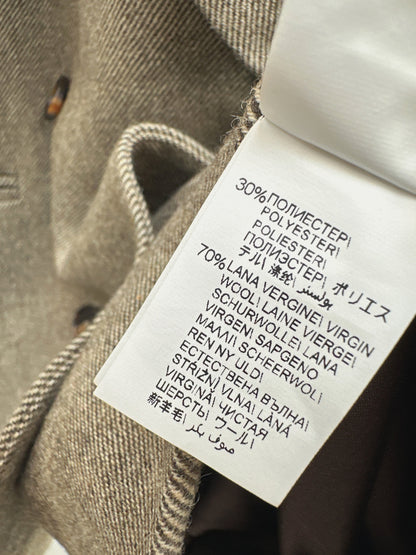 30%ПОЛИЕСТЕР|
POLYESTER|
POLIESTER|
ПОЛИЭСТЕР|
テル| 涤纶| پولستر| ポリエス
70%LANA VERGINE| VIRGIN
WOOL| LAINE VIERGE|
SCHURWOLLE| LANA
VIRGEN| SAPGENO
MAΛΛΙ| SCHEERWOL|
REN NY ULD|
ЕСТЕСТВЕНА ВЪЛНА|
STŘIŽNÍ VLNA| LÁNÁ
VIRGINÁ| ЧИСТАЯ
ШЕРСТЬ| ウール|
新羊毛| صوف بكر|